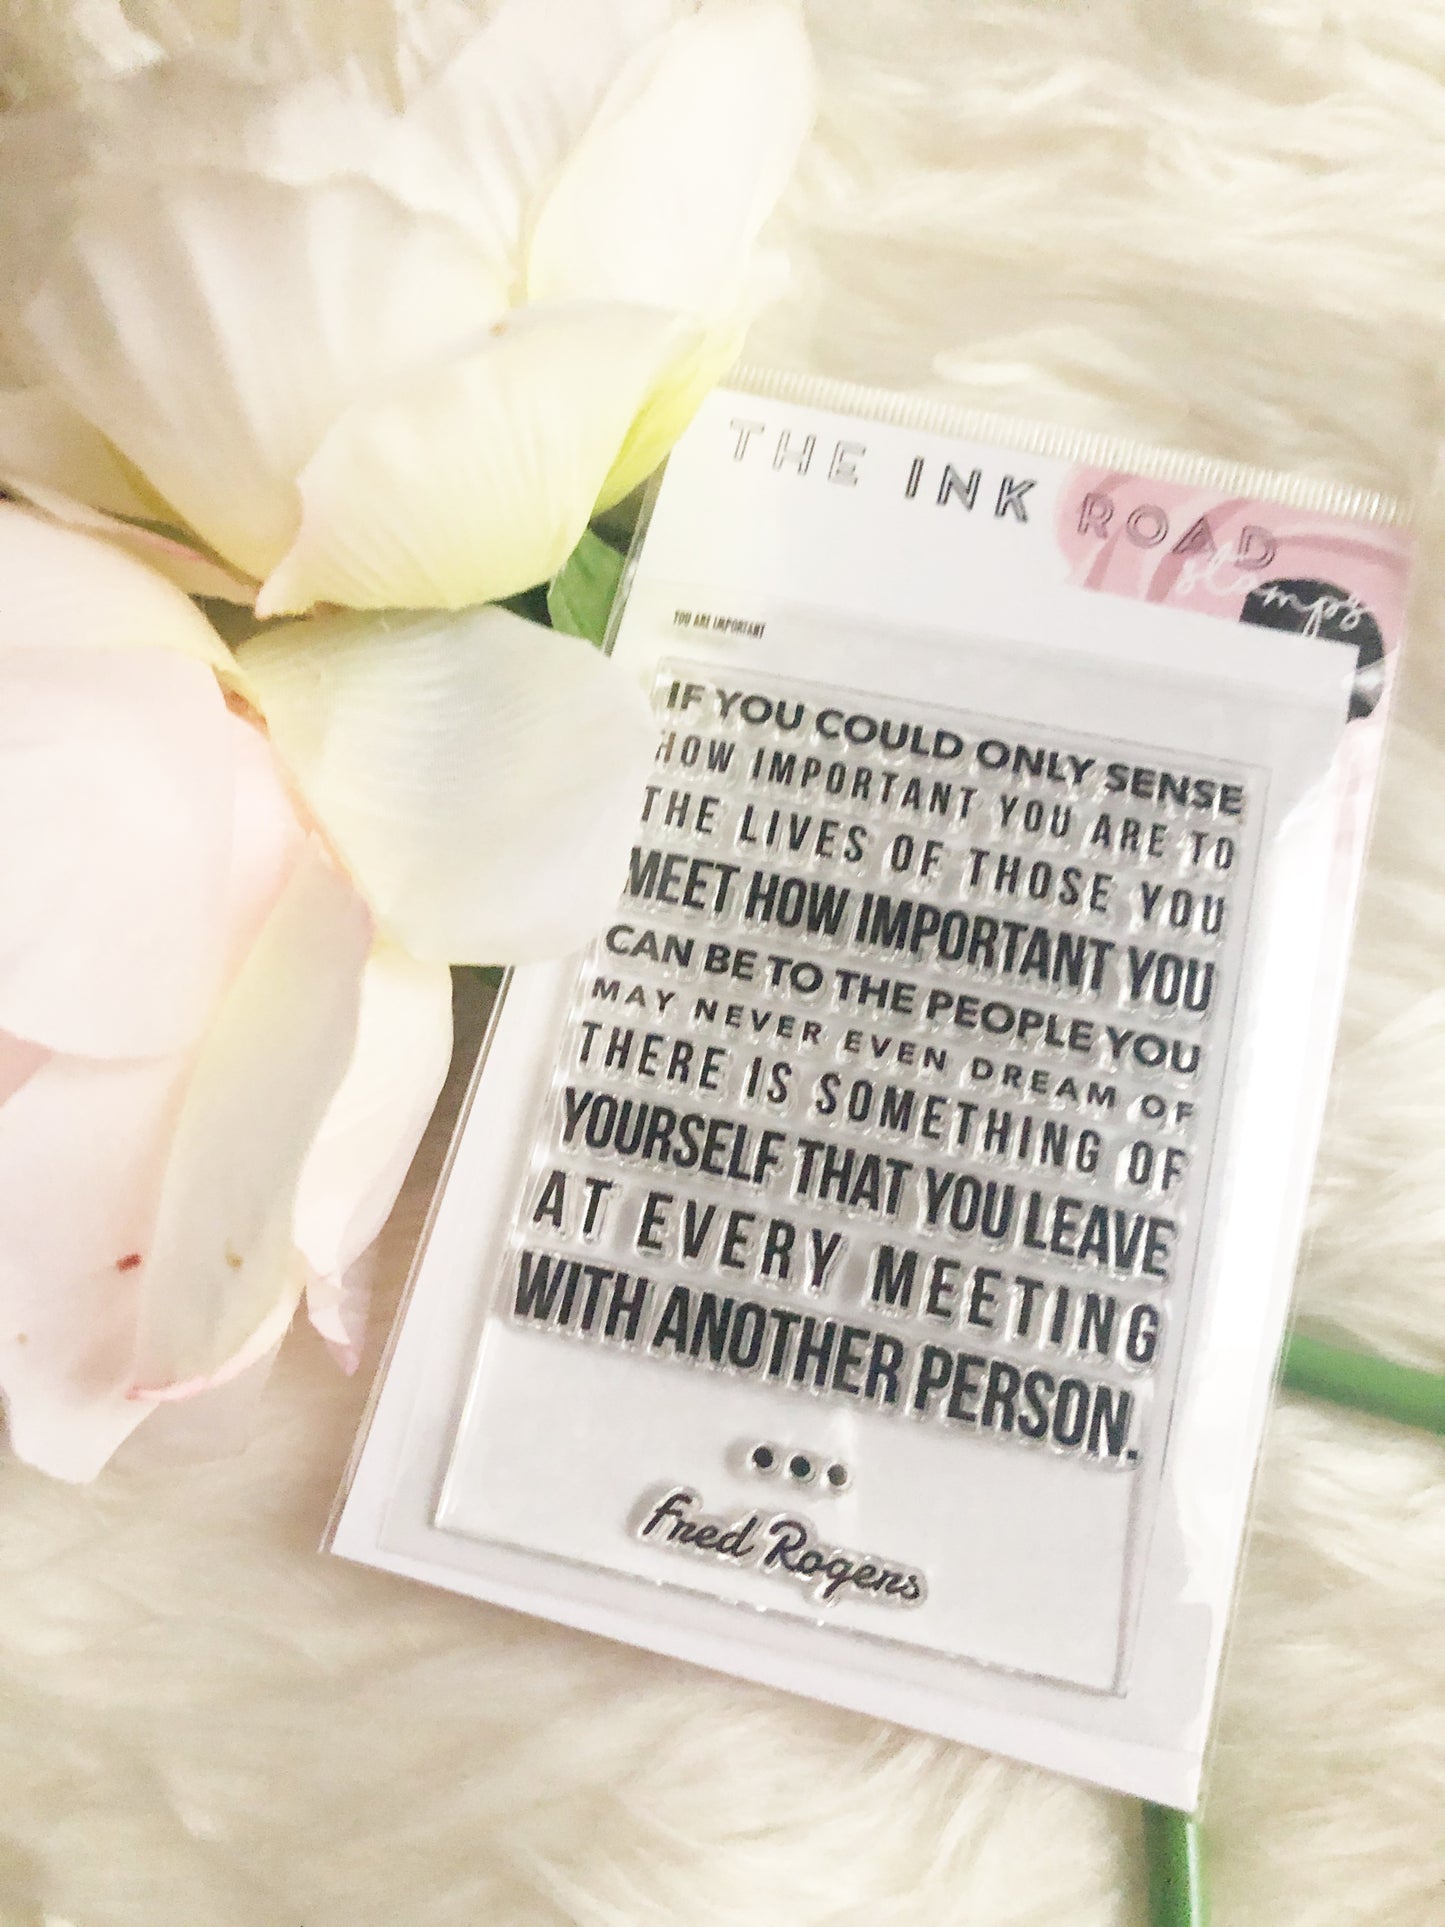 THE INK ROAD
stamps
YOU ARE IMPORTANT
IF YOU COULD ONLY SENSE
HOW IMPORTANT YOU ARE TO
THE LIVES OF THOSE YOU
MEET HOW IMPORTANT YOU
CAN BE TO THE PEOPLE YOU
MAY NEVER EVEN DREAM OF
THERE IS SOMETHING OF
YOURSELF THAT YOU LEAVE
AT EVERY MEETING
WITH ANOTHER PERSON.
•••
Fred Rogers